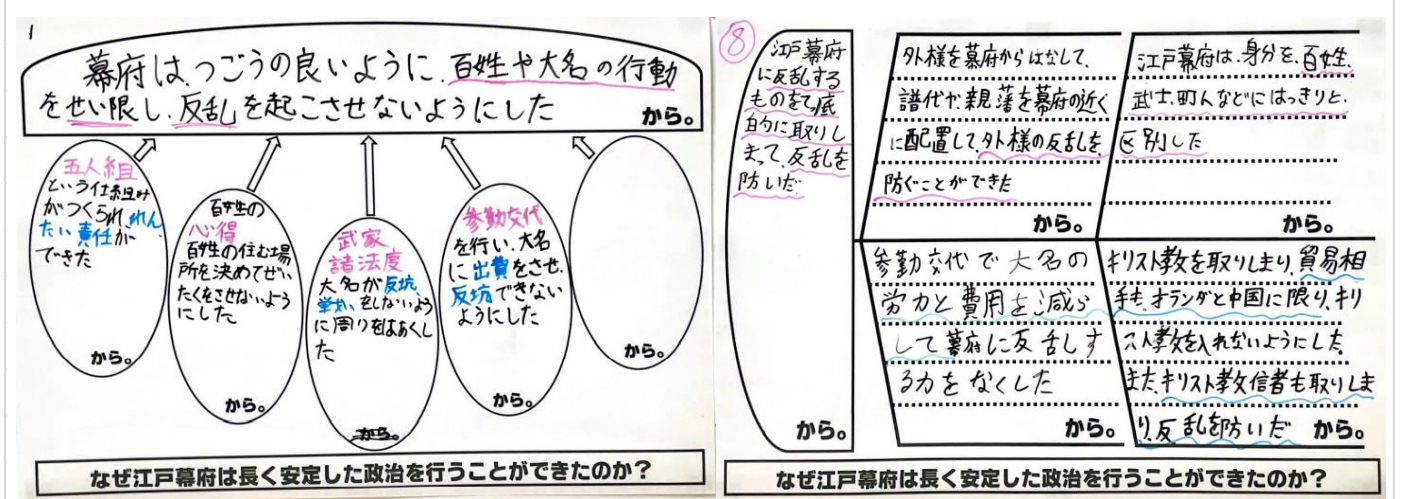 1
幕府は、つごうの良いように、百姓や大名の行動
をせい限し、反乱を起こさせないようにした
から。
五人組
という仕組み
がつくられ、れん
たい責任が
できた
から。
百姓の
心得
百姓の住む場
所を決めてぜい
たくをさせないよう
にした
から。
武家
諸法度
大名が反坑、
戦いをしないよう
に周りをはあくし
た
から。
参勤交代
を行い、大名
に出費をさせ、
反坑できない
ようにした
から。
から。
なぜ江戸幕府は長く安定した政治を行うことができたのか?
⑧
江戸幕府
に反乱する
ものをて底
的に取りし
まって、反乱を
防いだ
から。
外様を幕府からはなして、
譜代や、親藩を幕府の近く
に配置して、外様の反乱を
防ぐことができた
から。
江戸幕府は、身分を、百姓、
武士、町人などにはっきりと、
区別した
から。
参勤交代で大名の
労力と費用を減ら
して幕府に反乱す
る力をなくした
から。
キリスト教を取りしまり、貿易相
手も、オランダと中国に限り、キリ
スト教を入れないようにした。
また、キリスト教信者も取りしま
り、反乱を防いだ から。
なぜ江戸幕府は長く安定した政治を行うことができたのか?